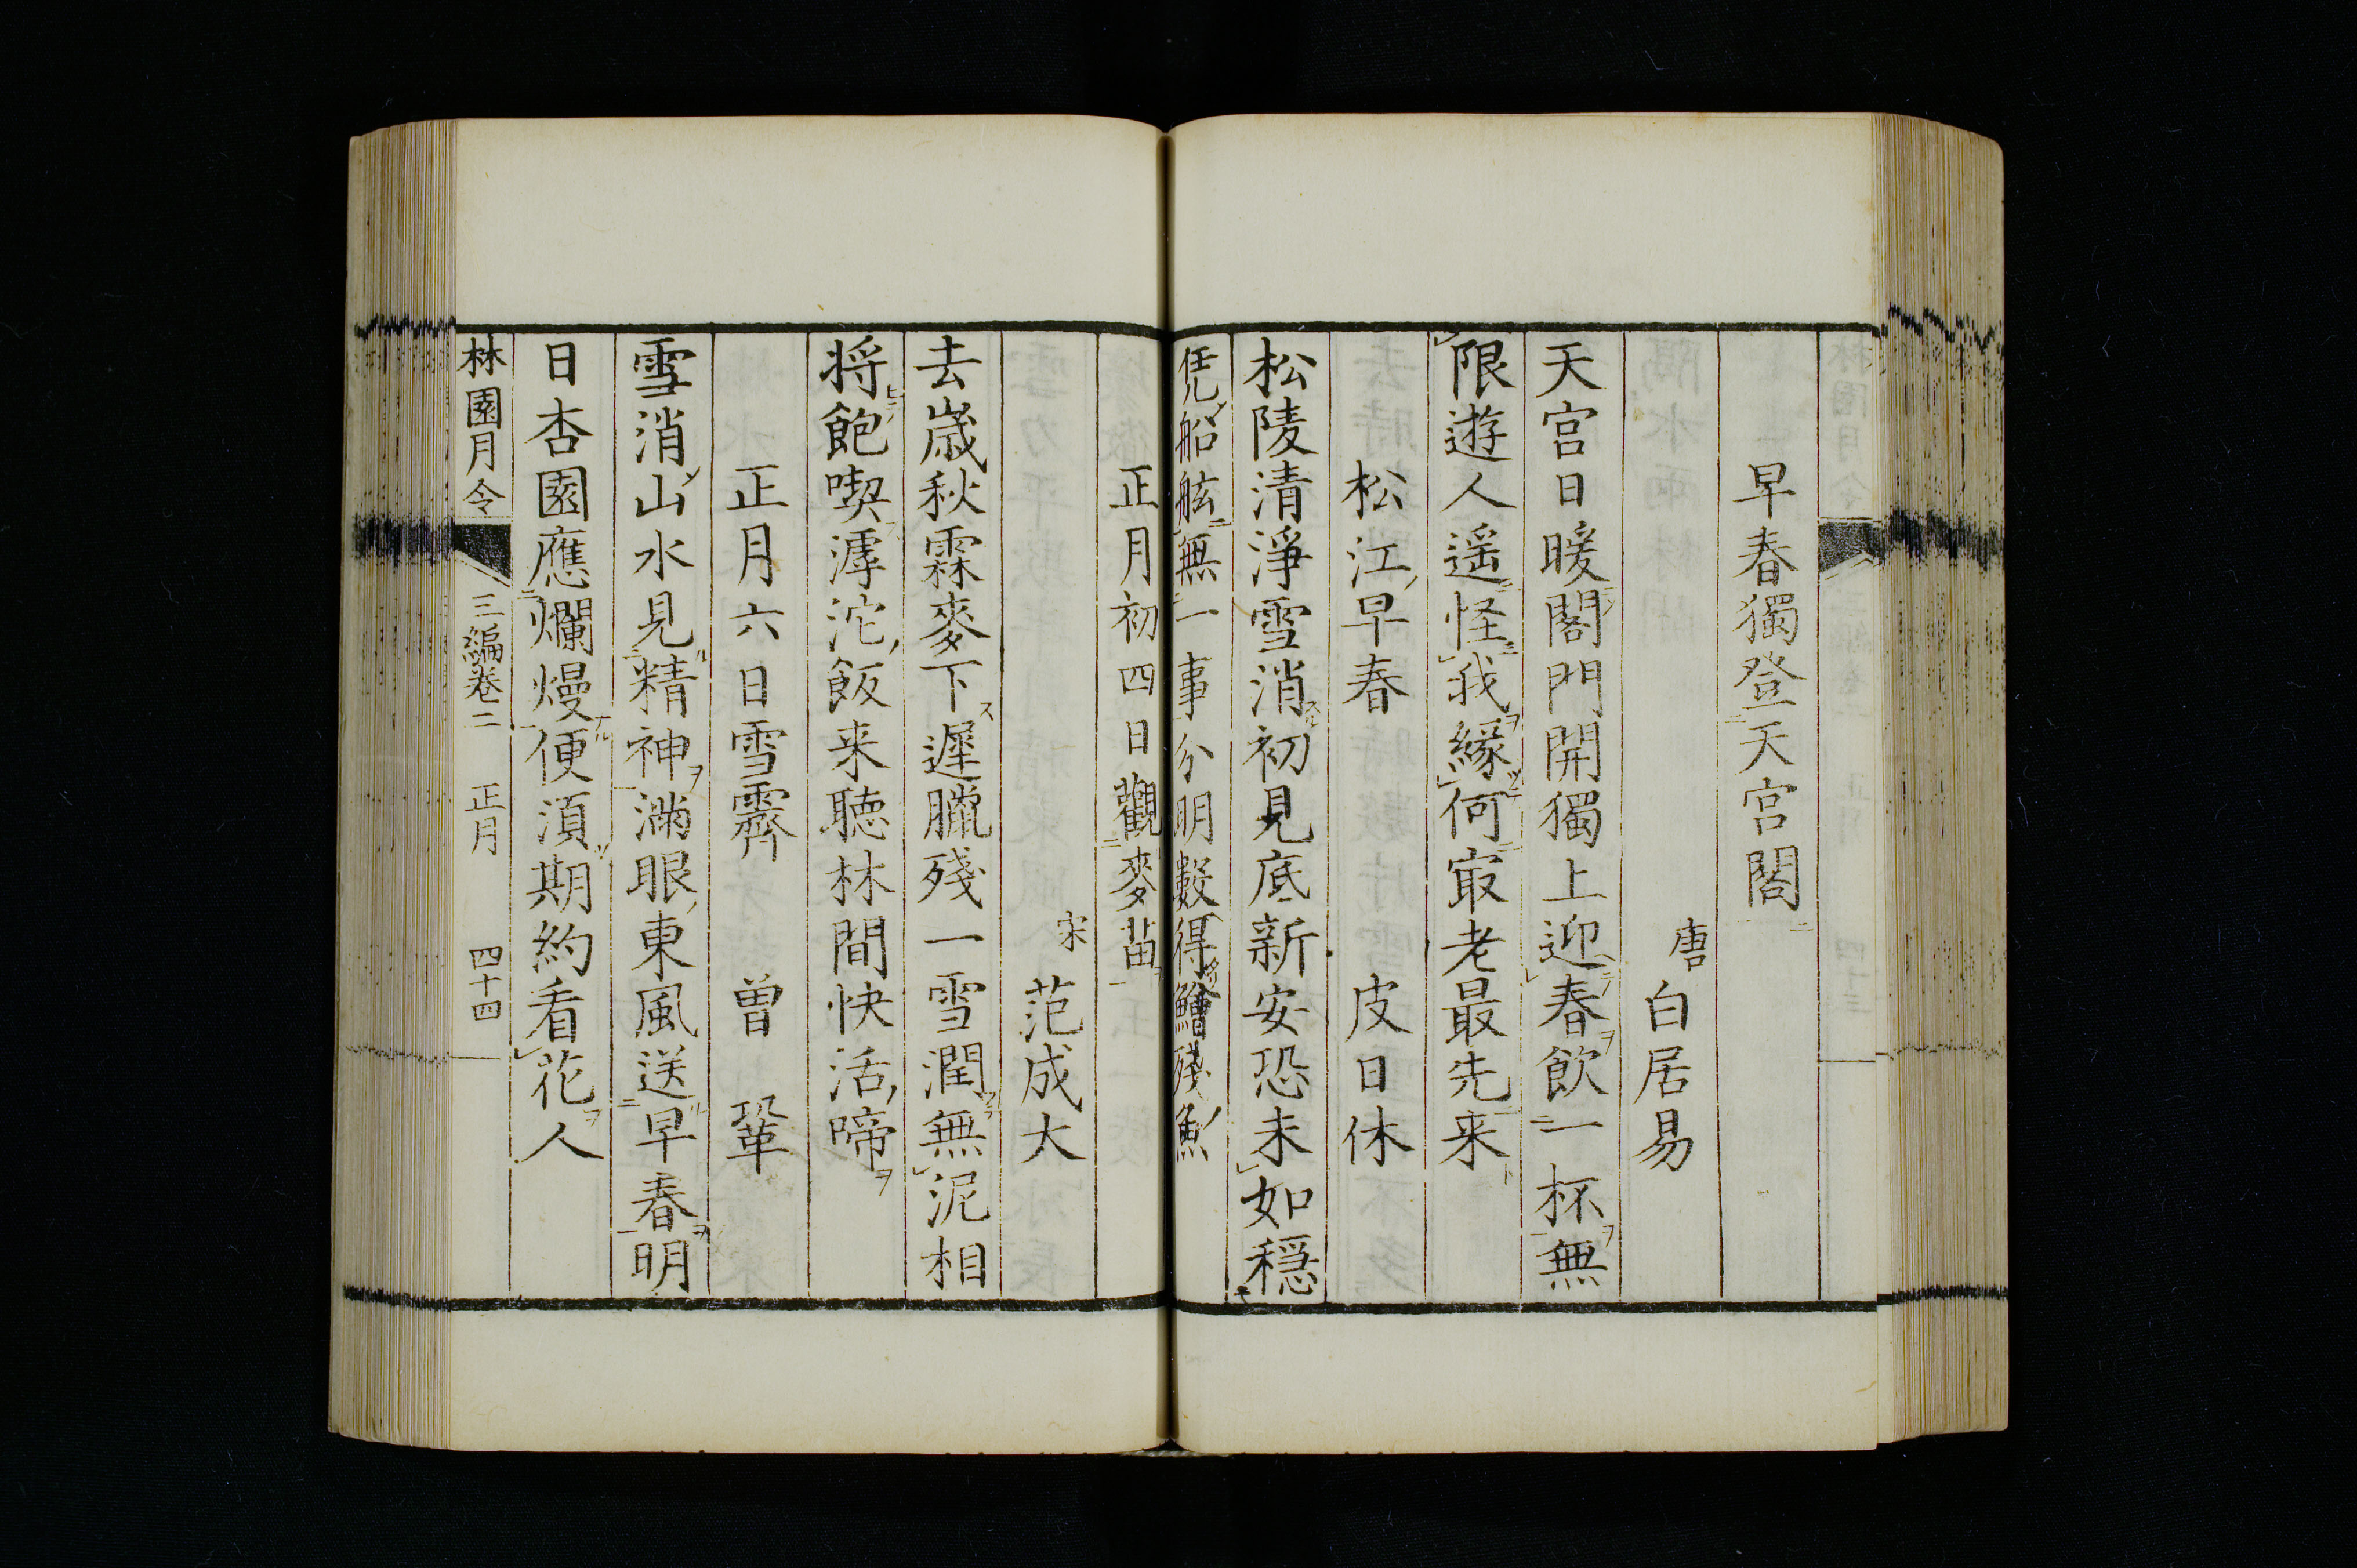 早春獨登天宮閣
唐 白居易
天宮日暖閣門開獨上迎春飲一杯無
限遊人遥怪我緣何㝡老最先来
松江早春 皮日休
松陵清淨雪消初見底新安恐未如穏
凭船舷無一事分明數得鱠殘魚
正月初四日觀麥苗
宋 范成大
去歳秋霖麥下遲臘殘一雪潤無泥相
将飽喫滹沱飯来聴林間快活啼
正月六日雪霽 曽鞏
雪消山水見精神滿眼東風送早春明
日杏園應爛熳便湏期約看花人
林園月令 三編卷二 正月 四十四